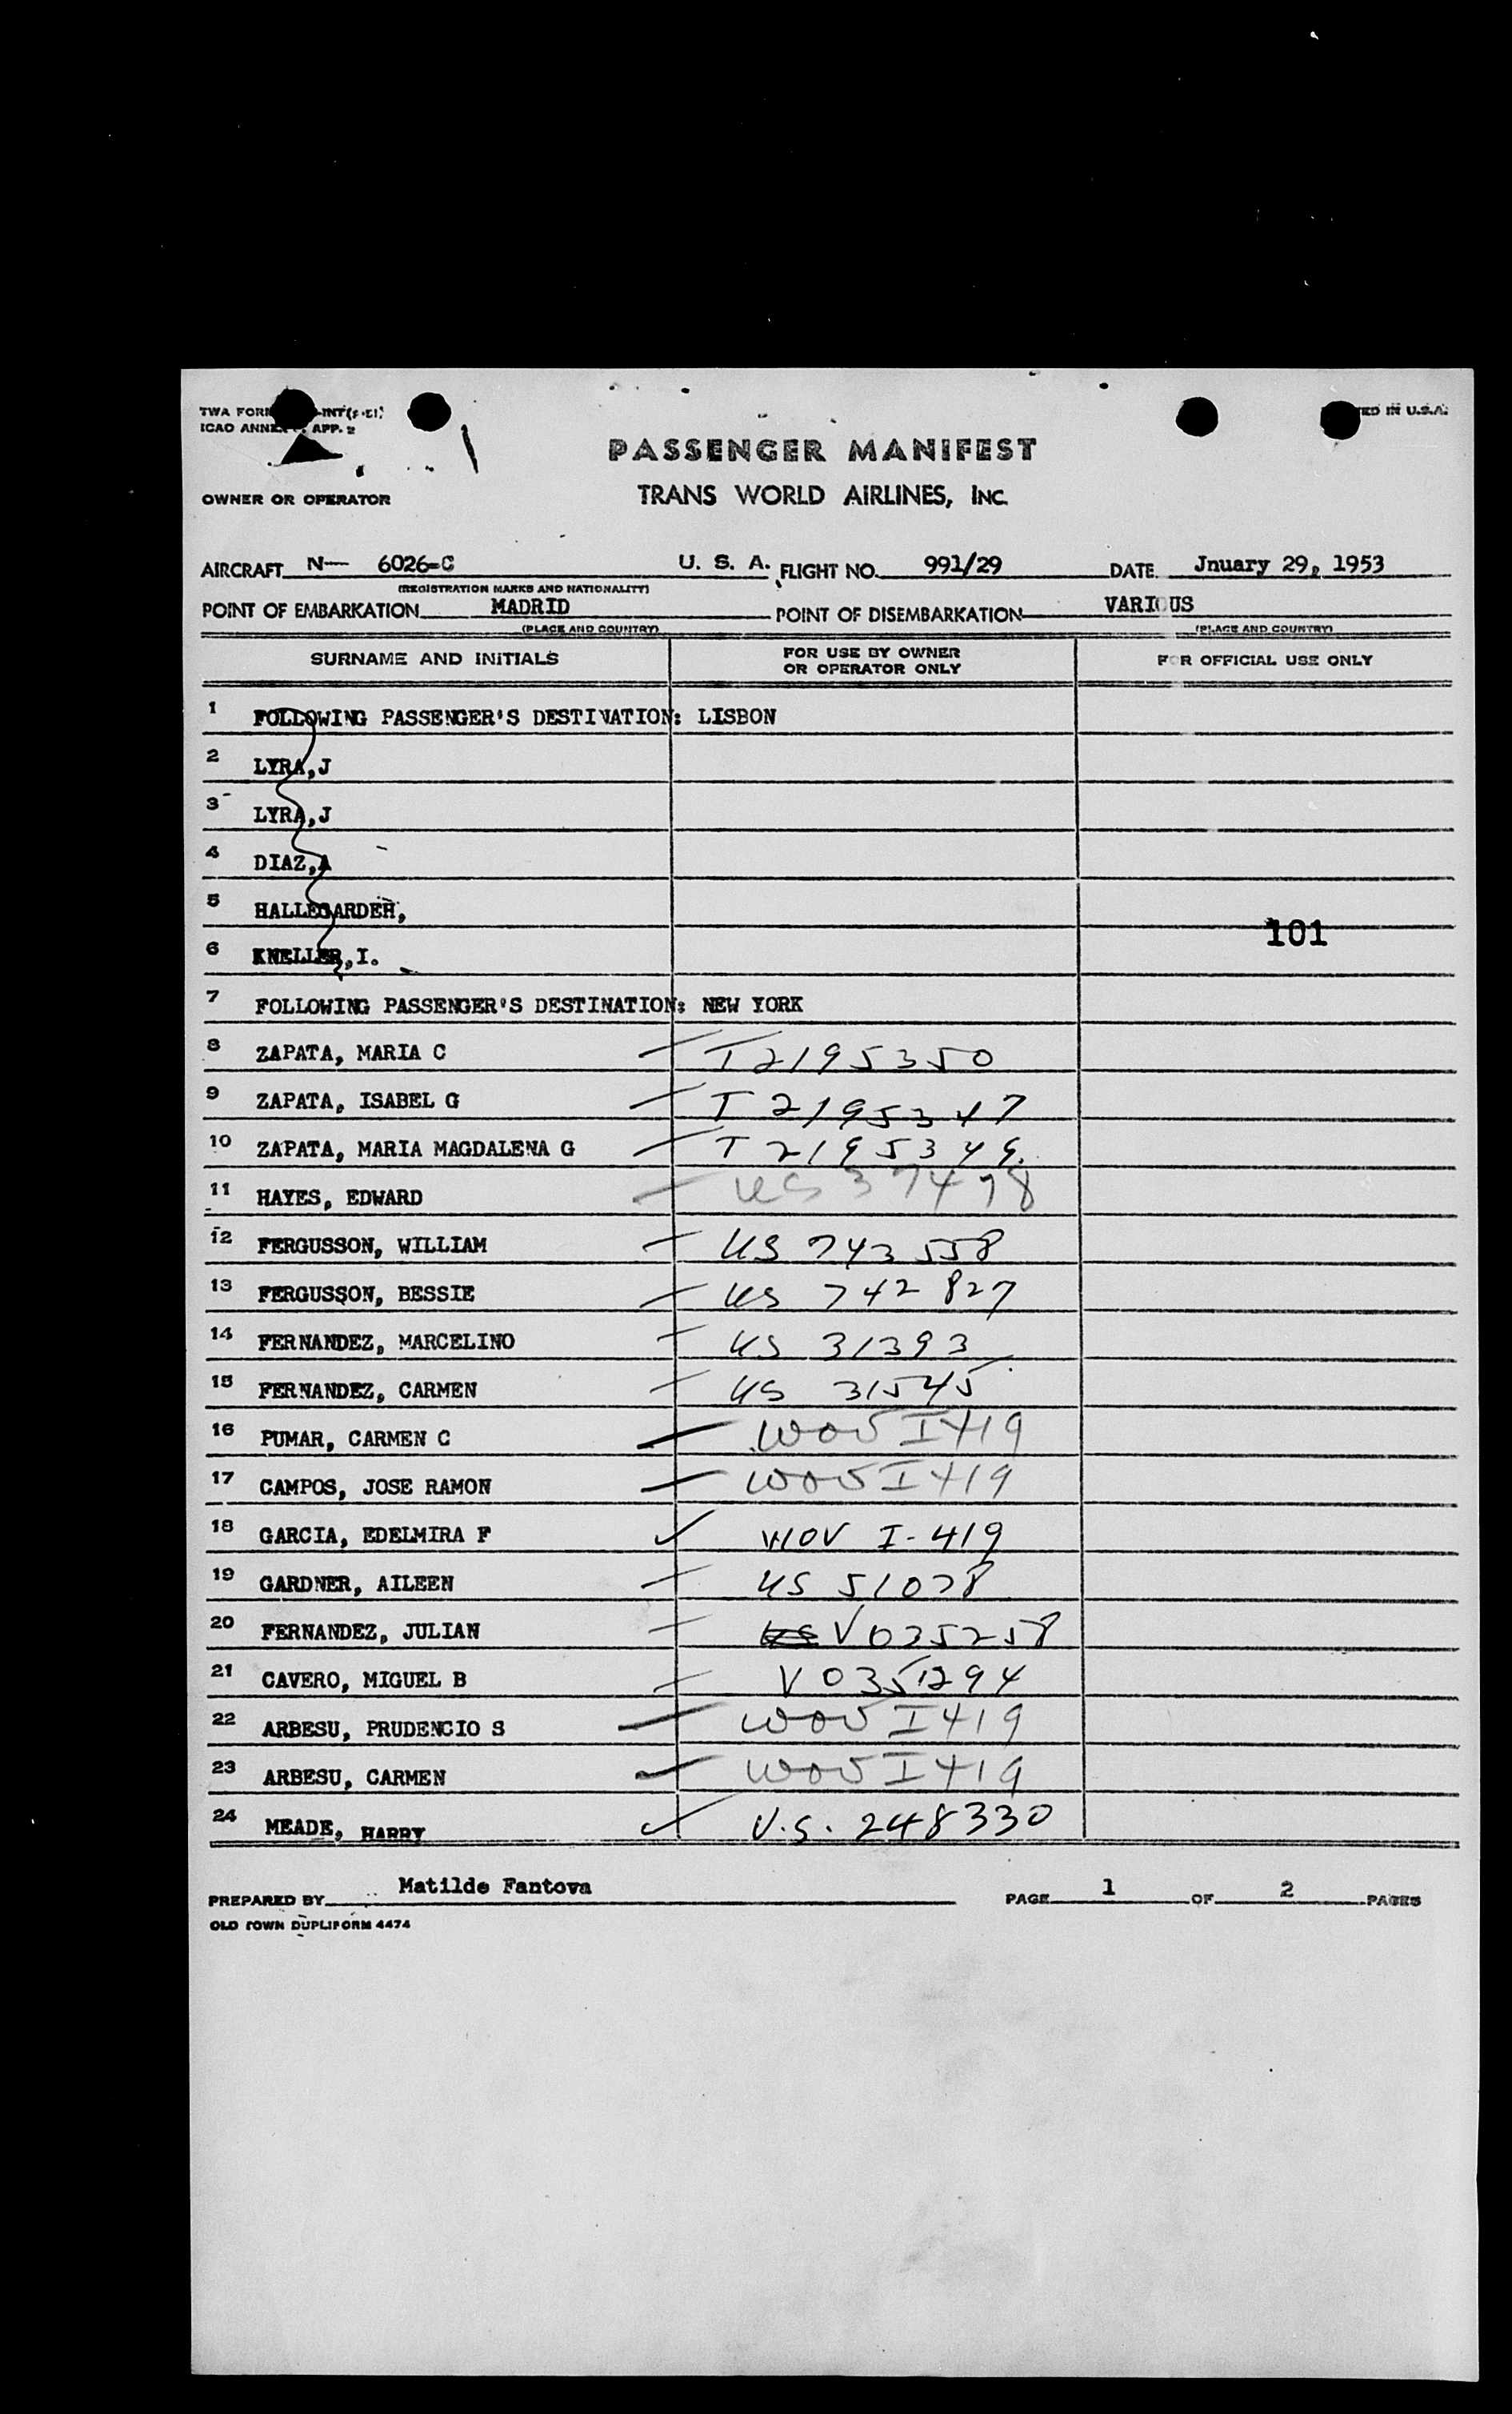 TWA FORM
ICAO ANNEX APP. 2
ED IN U.S.A.
PASSENGER MANIFEST
OWNER OR OPERATOR TRANS WORLD AIRLINES, INC.
AIRCRAFT N— 6026-C U. S. A. FLIGHT NO. 991/29 DATE Jnuary 29, 1953
(REGISTRATION MARKS AND NATIONALITY)
POINT OF EMBARKATION MADRID POINT OF DISEMBARKATION VARIOUS
(PLACE AND COUNTRY) (PLACE AND COUNTRY)
SURNAME AND INITIALS FOR USE BY OWNER OR OPERATOR ONLY FOR OFFICIAL USE ONLY
1 FOLLOWING PASSENGER'S DESTIVATION: LISBON
2 LYRA,J
3 LYRA,J
4 DIAZ,A
5 HALLEGARDEH,
101
6 KNELLER,I.
7 FOLLOWING PASSENGER'S DESTINATION: NEW YORK
8 ZAPATA, MARIA C T2195350
9 ZAPATA, ISABEL G T 2195347
10 ZAPATA, MARIA MAGDALENA G T 2195349
11 HAYES, EDWARD US 37478
12 FERGUSSON, WILLIAM US 743558
13 FERGUSSON, BESSIE US 742827
14 FERNANDEZ, MARCELINO US 31393
15 FERNANDEZ, CARMEN US 31545
16 PUMAR, CARMEN C WOV I419
17 CAMPOS, JOSE RAMON WOV I419
18 GARCIA, EDELMIRA F WOV I-419
19 GARDNER, AILEEN US 51078
20 FERNANDEZ, JULIAN V035258
21 CAVERO, MIGUEL B V 0351294
22 ARBESU, PRUDENCIO S WOV I419
23 ARBESU, CARMEN WOV I419
24 MEADE, HARRY U.S. 248330
PREPARED BY Matilde Fantova PAGE 1 OF 2 PAGES
OLD TOWN DUPLIFORM 4474